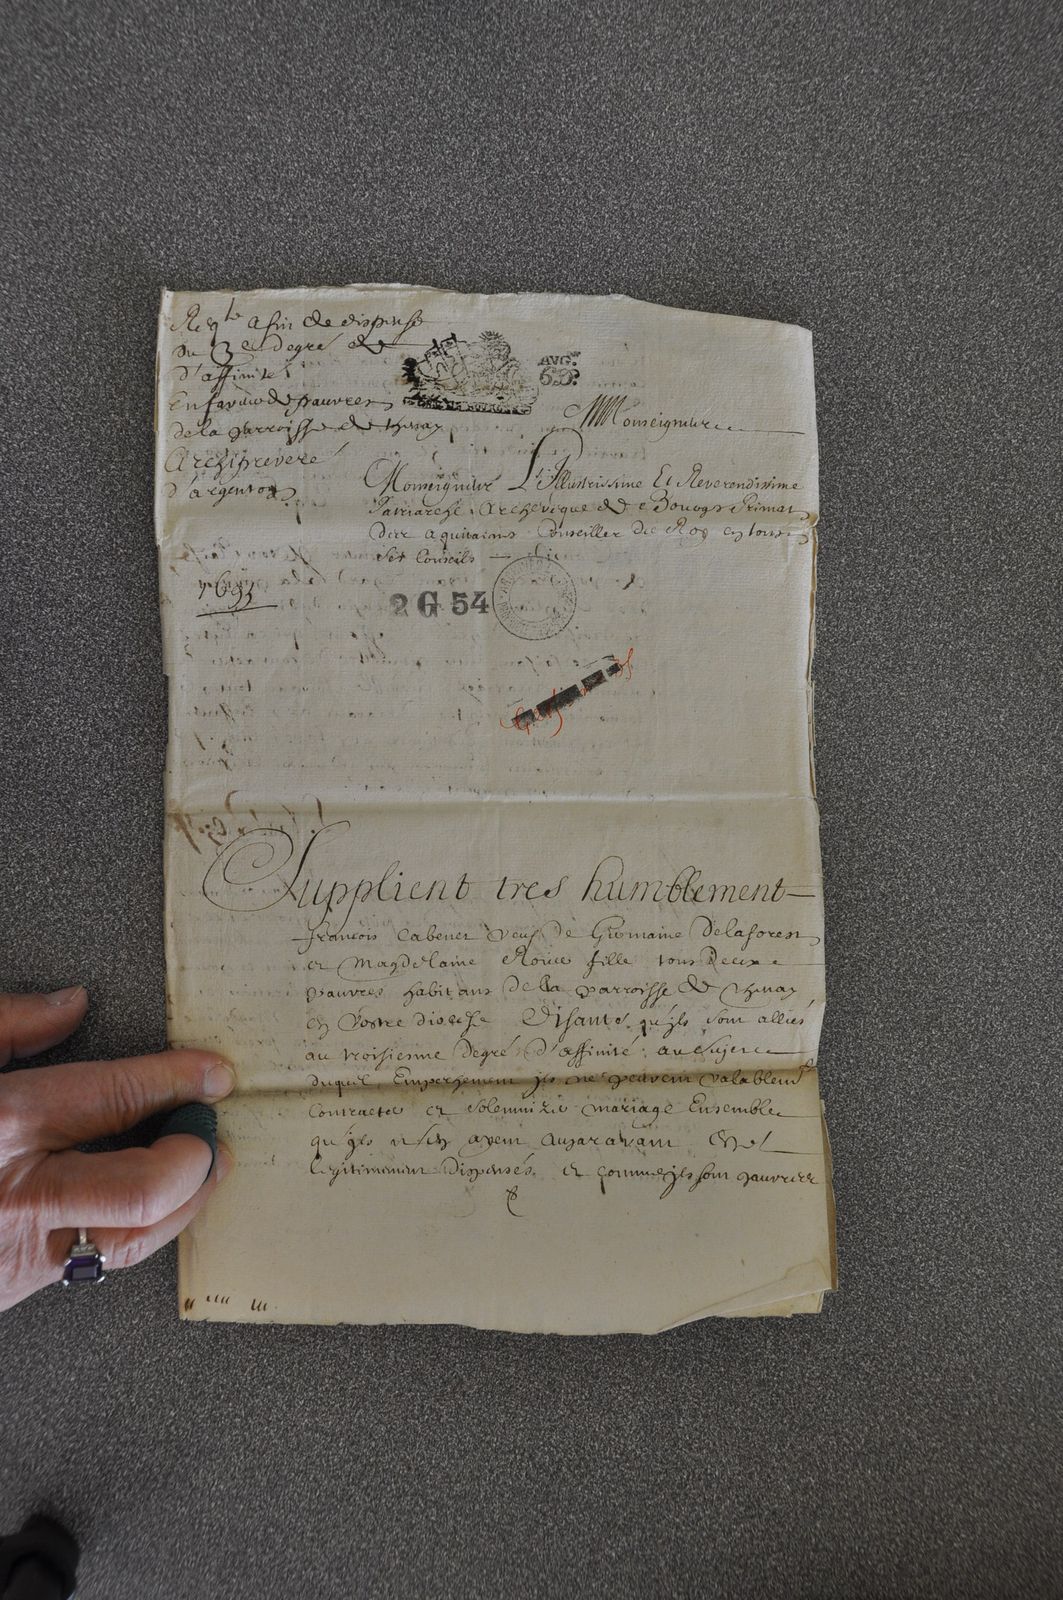 Reqte afin de dispense
du 3e degré
d'affinité
en faveur de pauvres
de la parroisse de thenay
Archiprevere
d'argenton
1693
AVG.on
6.D.
Monseigneur
Monseigneur L'Illustrissime Et Reverendissime
Patriarche Archeveque de Bourges Primat
des aquitaines Conseiller du Roy en tous
ses Conseils
2 G 54
Supplient tres humblement
françois veuf de Germaine Delaforest
et Magdelaine fille tous Deux
pauvres habitans De la parroisse de thenay
en vostre diocese Disants qu'ils sont alliés
au troisieme degré d'affinité au sujet
duquel Empeschement ils ne peuvent valablemt
contracter et solemnizer mariage Ensemble
qu'ils n'en ayent auparavant Esté
legitimement dispensés et comme ils sont pauvres